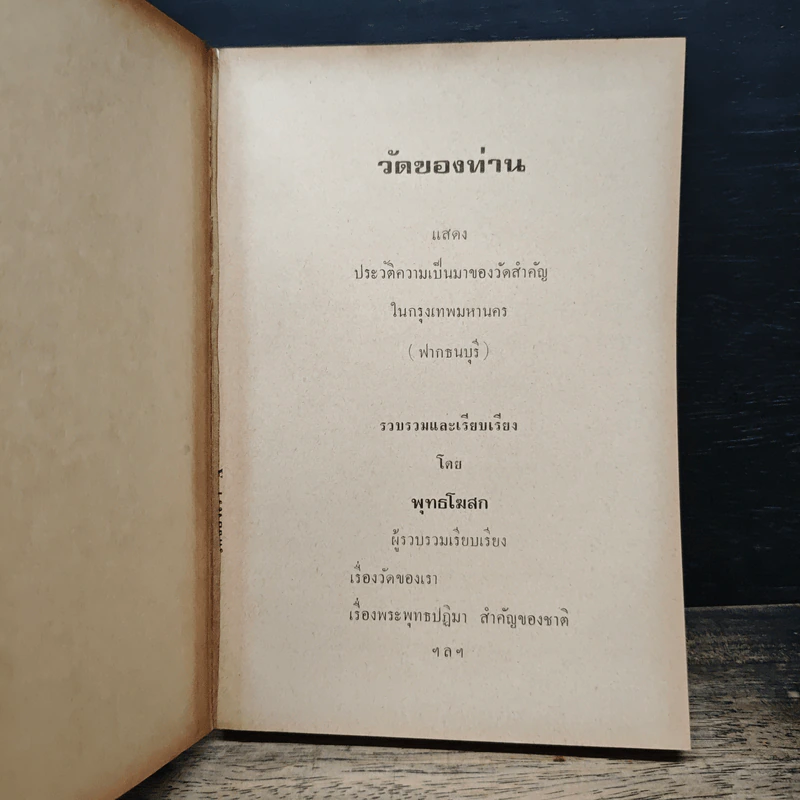 วัดของท่าน
แสดง
ประวัติความเป็นมาของวัดสำคัญ
ในกรุงเทพมหานคร
(ฟากธนบุรี)
รวบรวมและเรียบเรียง
โดย
พุทธโฆสก
ผู้รวบรวมเรียบเรียง
เรื่องวัดของเรา
เรื่องพระพุทธปฏิมา สำคัญของชาติ
ฯลฯ